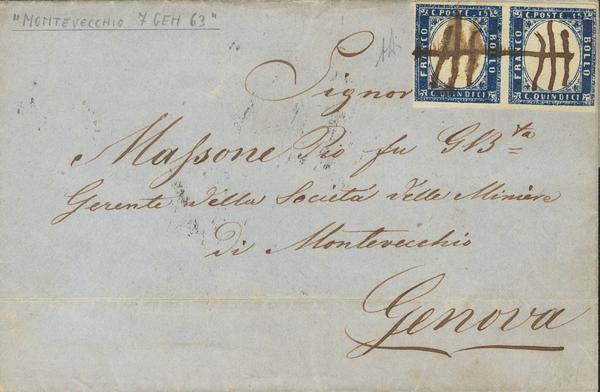 "MONTEVECCHIO 7 GEN 63"
C. POSTE. 15
FRANCO
BOLLO
C. QUINDICI
C. POSTE. 15
FRANCO
BOLLO
C. QUINDICI
Signor
Massone Pio fu GB.ta
Gerente della Società delle Miniere
di Montevecchio
Genova